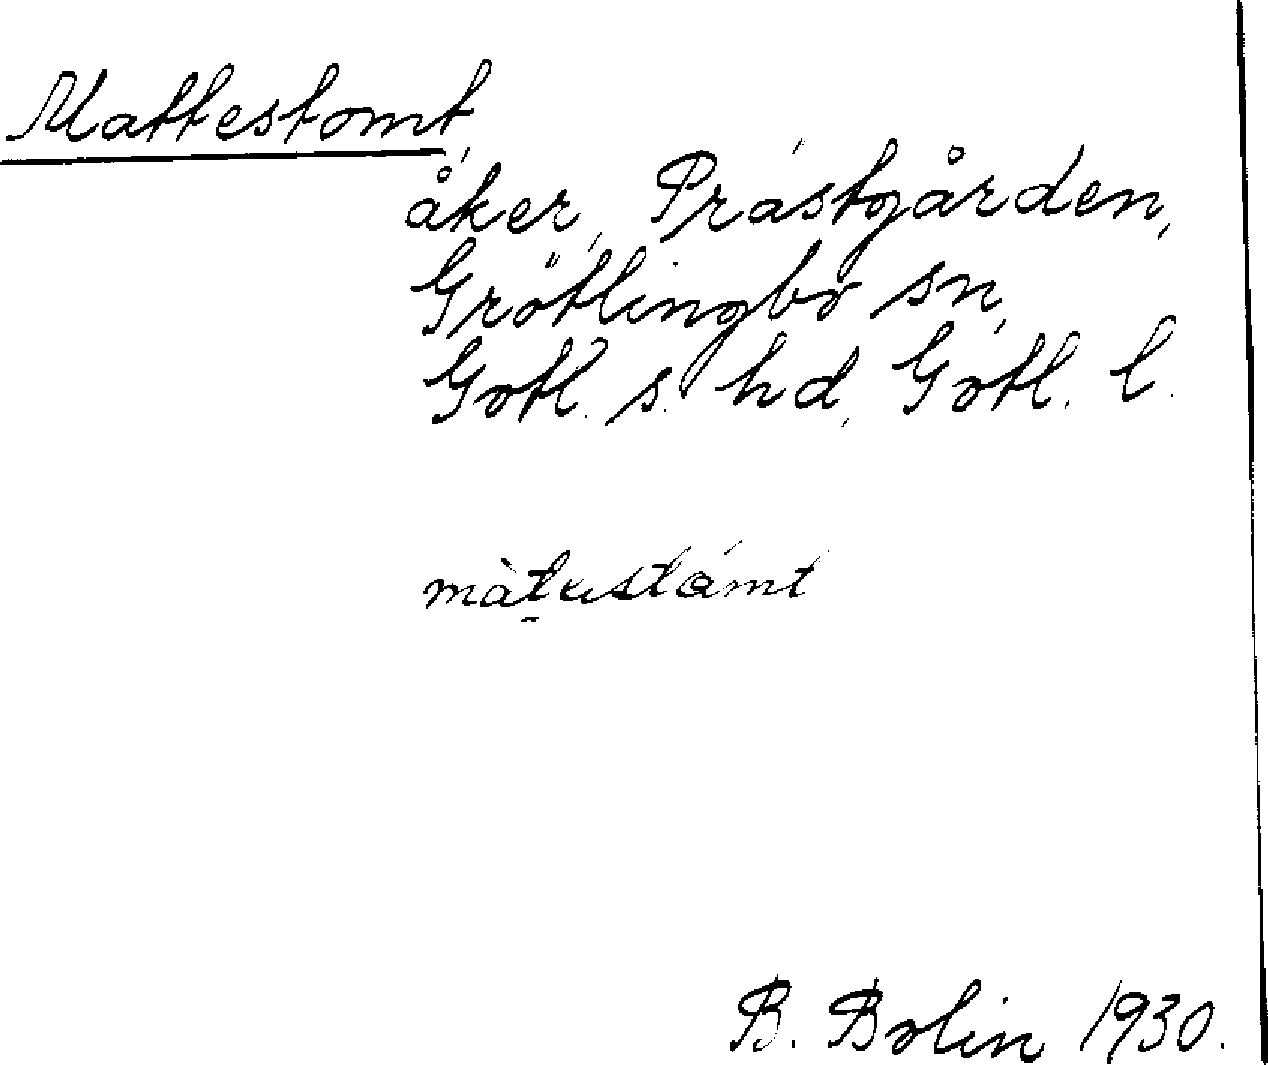 Mattestomt,
åker, Prästgården,
Grötlingbo sn,
Gotl. s. hd, Gotl. l.
B. Bolin 1930.